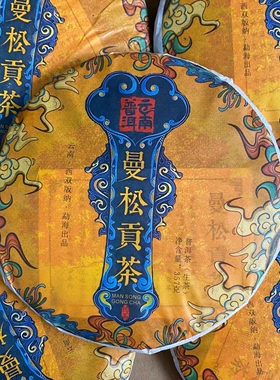 云南
普洱
曼松貢茶
MAN SONG
GONG CHA
云南·西双版纳·勐海出品
普洱茶（生茶）
净含量：357克
曼松貢茶
曼松
勐海出品